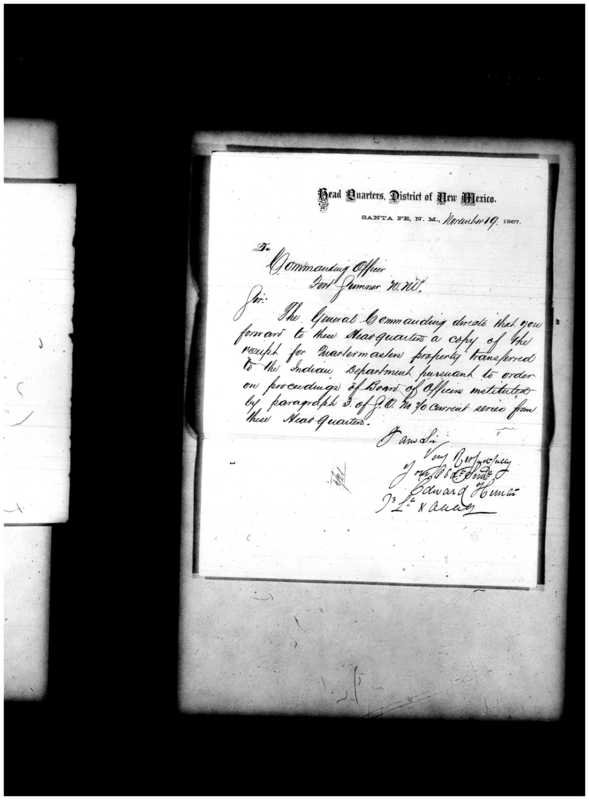 Head Quarters, District of New Mexico.
SANTA FE, N. M., November 19. 1867.
To
Commanding Officer
Fort Sumner N.M.
Sir:
The General Commanding directs that you
forward to these Head Quarters a copy of the
receipt for Quartermasters property transferred
to the Indian Department pursuant to order
on proceedings of Board of Officers instituted
by paragraph 3. of G.O. No 70 current series from
these Head Quarters.
I am Sir
Very Respectfully
Your Obdt Servt
Edward Hunter